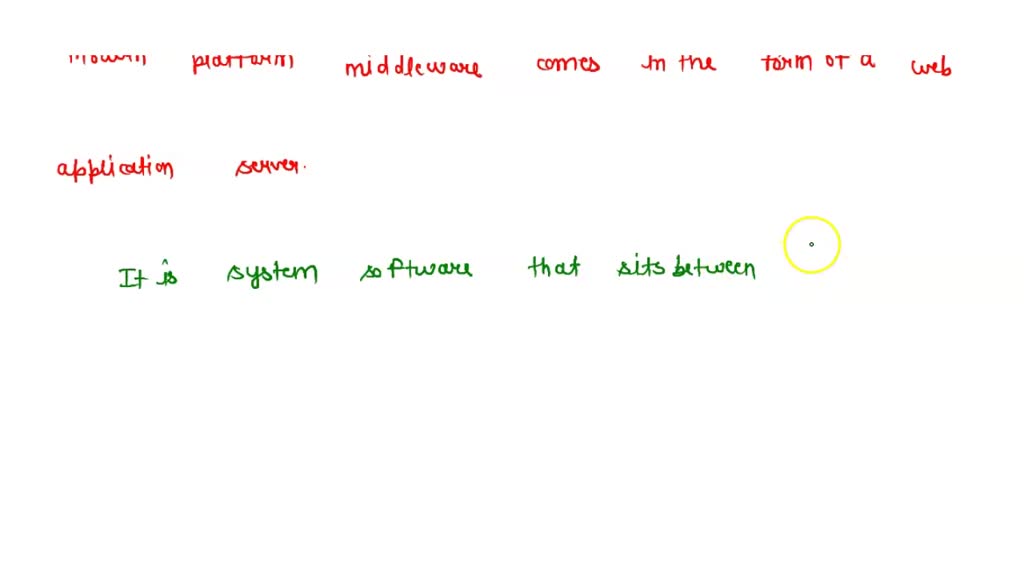 platform middleware comes in the form of a web
application server.
It is system software that sits between